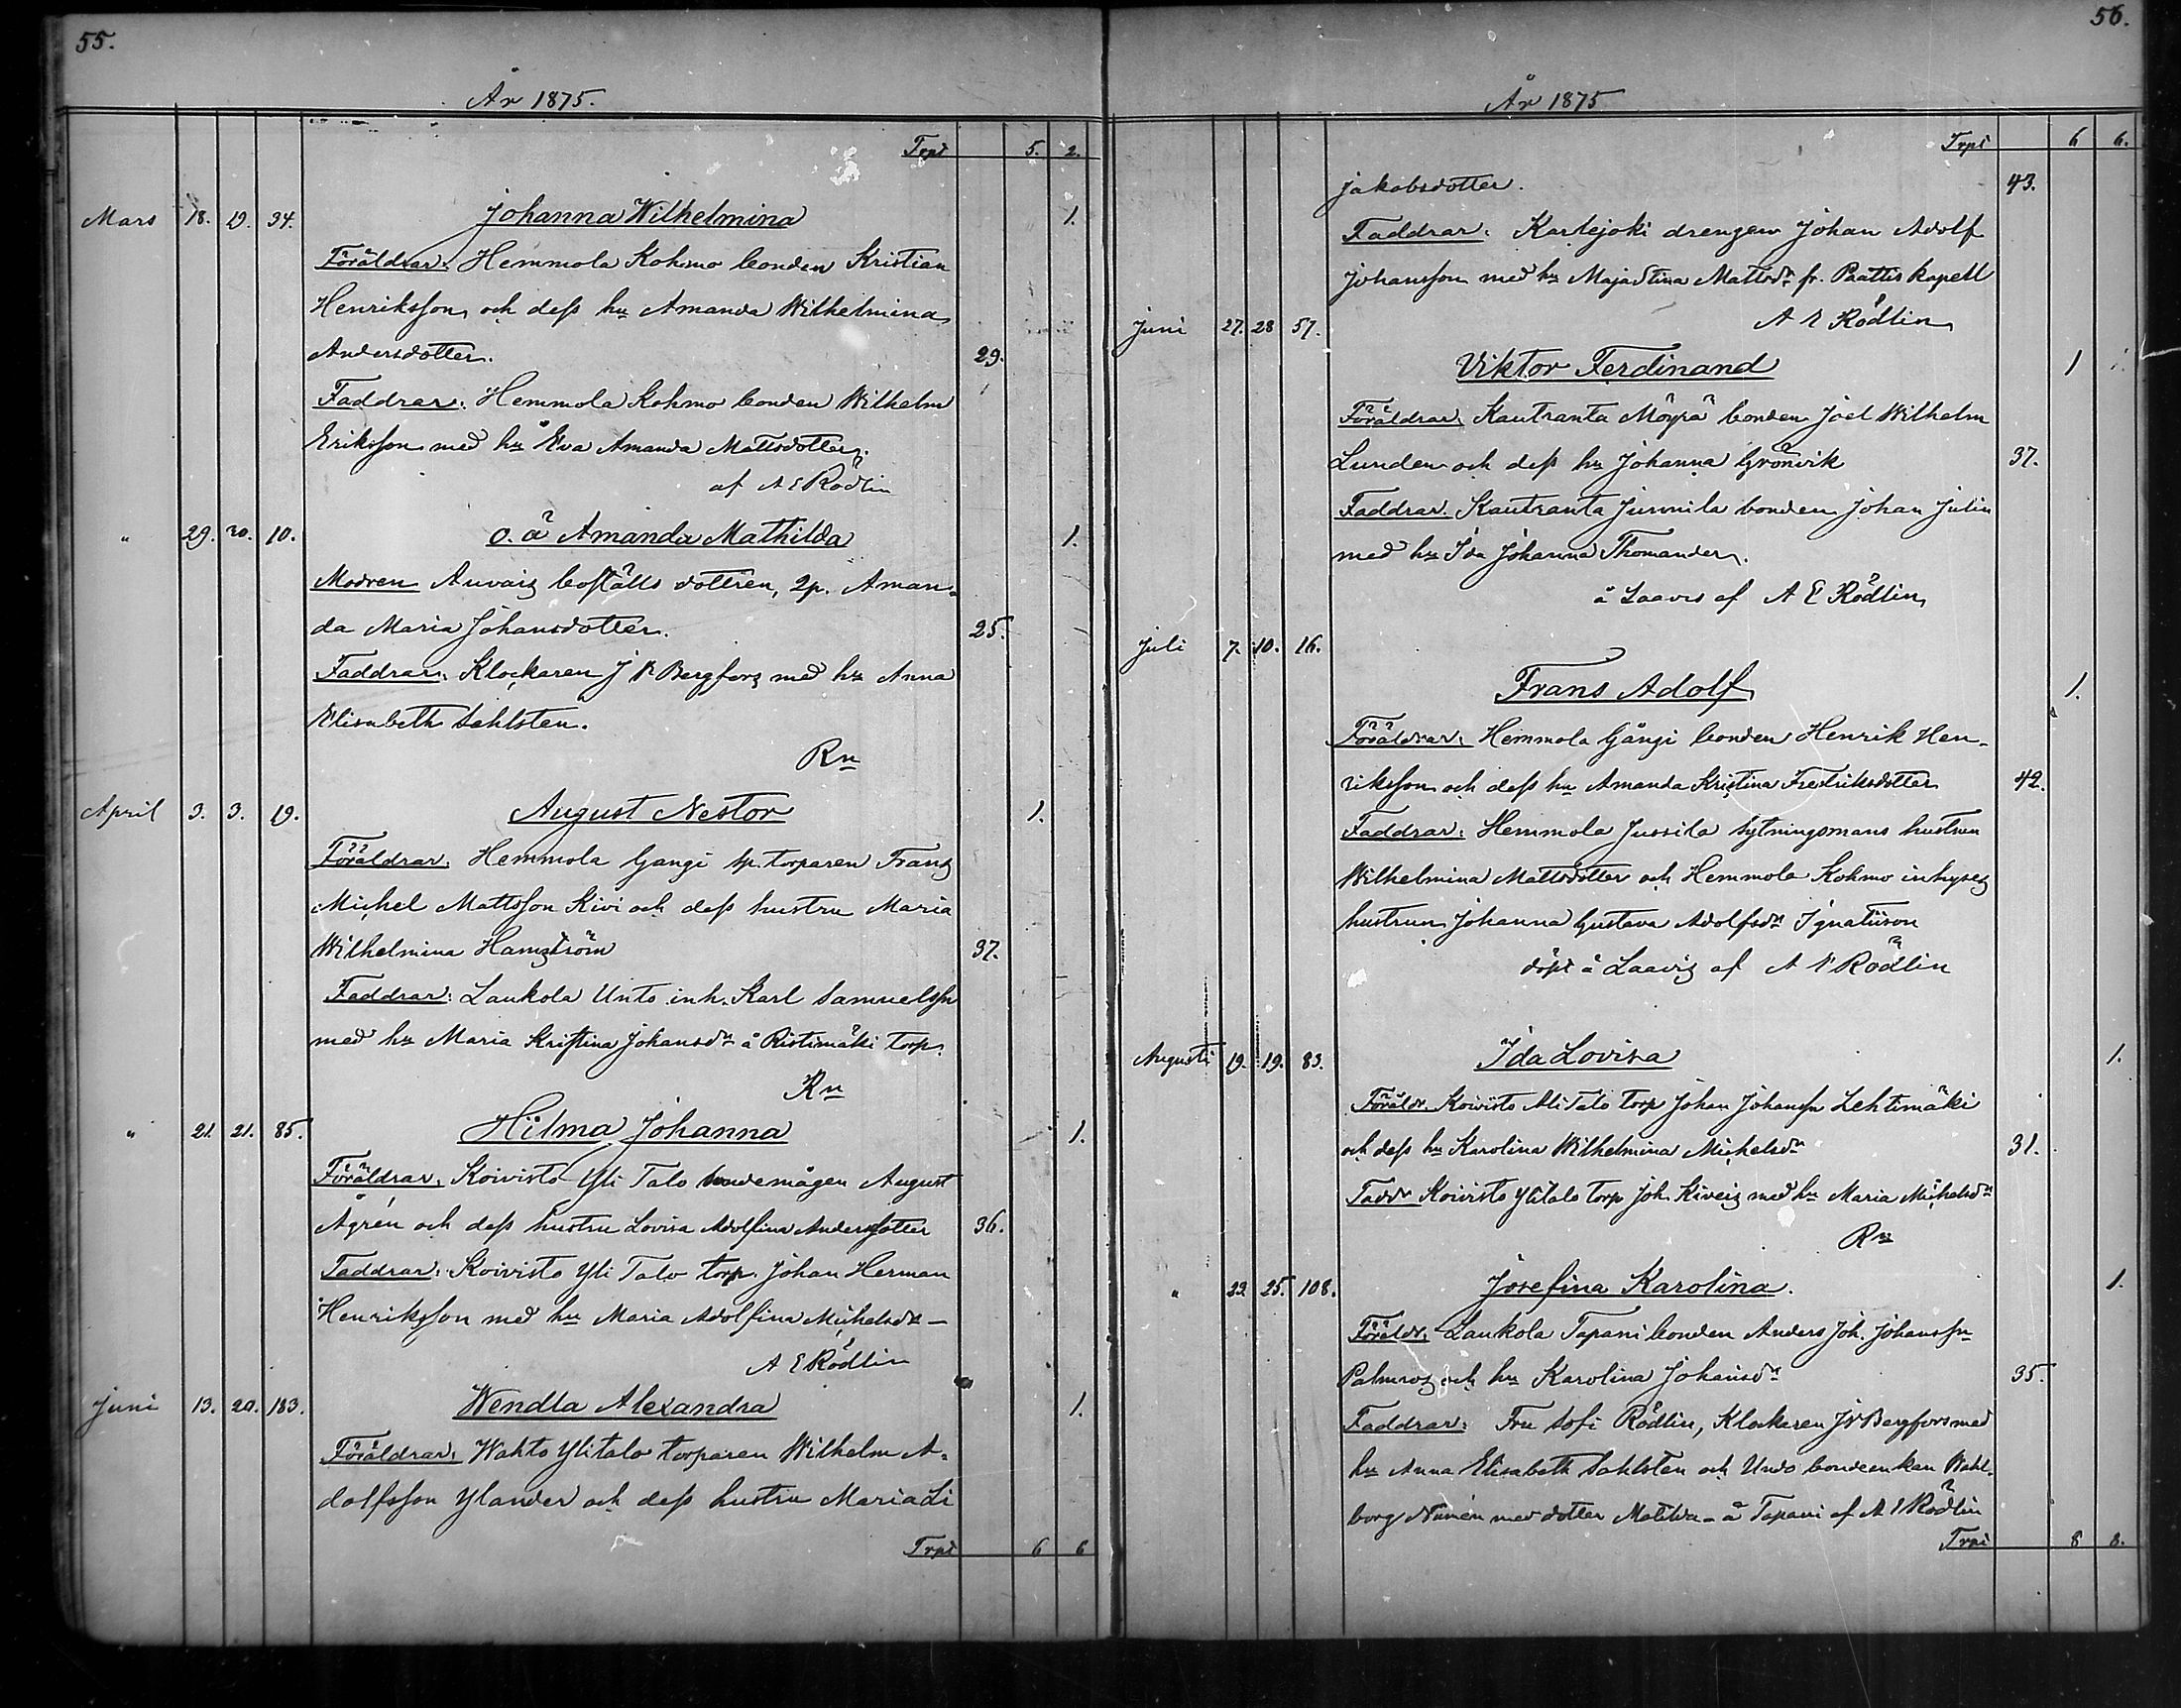 55.
År 1875.
Trpt 5. 2.
Mars 18. 19. 34. Johanna Wilhelmina 1.
Föräldrar: Hemmola Kohmo bonden Kristian
Henriksson och dess hu Amanda Wilhelmina
Andersdotter. 29.
Faddrar: Hemmola Kohmo bonden Wilhelm
Eriksson med hu Eva Amanda Mattsdotter.
af A E Rödlin
" 29. 30. 10. o. ä Amanda Mathilda 1.
Modren Auvais boställs dottren, 2p. Aman-
da Maria Johansdotter. 25.
Faddrar: Klockaren J V Bergfors med hu Anna
Elisabeth Sahlsten.
Rn
April 3. 3. 19. August Nestor 1.
Föräldrar: Hemmola Gangi sp. torparen Frans
Michel Mattsson Kivi och dess hustru Maria
Wilhelmina Hamström 37.
Faddrar: Laukola Unto inh. Karl Samuelssn
med hu Maria Kristina Johansdr å Ristimäki torp.
Rn
" 21. 21. 85. Hilma Johanna 1.
Föräldrar: Koivisto Yli Talo bondemågen August
Ågrén och dess hustru Lovisa Adolfina Andersdotter 36.
Faddrar: Koivisto Yli Talo torp. Johan Herman
Henriksson med hu Maria Adolfina Michelsdr –
A E Rödlin
Juni 13. 20. 183. Wendla Alexandra 1.
Föräldrar: Wahto Ylitalo torparen Wilhelm A-
dolfsson Ylander och dess hustru Maria Li
Trpt 6 6
56.
År 1875
Trpt 6 6.
Jakobsdotter. 43.
Faddrar: Karlejoki drengen Johan Adolf
Johansson med hu Maja Stina Mattsdr fr. Paattis kapell
A E Rödlin
Juni 27. 28 57.
Viktor Ferdinand 1
Föräldrar: Kautranta Möyrä bonden Joel Wilhelm
Lunden och dess hu Johanna Grönvik 37.
Faddrar: Kautranta Junnila bonden Johan Julin
med hu Ida Johanna Thomander.
å Laavis af A E Rödlin
Juli 7. 10. 16.
Frans Adolf 1.
Föräldrar: Hemmola Gångi bonden Henrik Hen-
riksson och dess hu Amanda Kristina Fredriksdotter 42.
Faddrar: Hemmola Jussila sytningsmans hustrun
Wilhelmina Mattsdotter och Hemmola Kohmo inhyses
hustrun Johanna Gustava Adolfsdr Ignatiuson
döpt å Laavis af A E Rödlin
Augusti 19. 19. 83. Ida Lovisa 1.
Föräldr. Koivisto Ali Talo torp Johan Johanssn Lehtimäki
och dess hu Karolina Wilhelmina Michelsdr 31.
Faddr Koivisto Ylitalo torp Joh. Kiveis med hu Maria Michelsdr
Rn
" 23. 25. 108. Josefina Karolina. 1.
Föräldr. Laukola Tapani bonden Anders Joh. Johanssn
Palmros och hu Karolina Johansdr 35.
Faddrar: Fru Sofi Rödlin, Klockaren J V Bergfors med
hu Anna Elisabeth Sahlsten och Undo bondeenkan Wahl-
borg med dotter Matilda – å Tapani af A E Rödlin
Trpt 8 8.